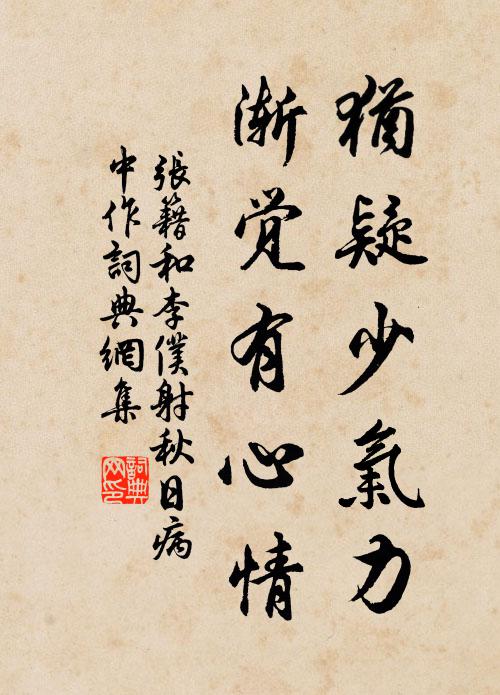 猶疑少氣力
漸覚有心情
張籍和李僕射秋日病
中作詞典網集
詞典
网印